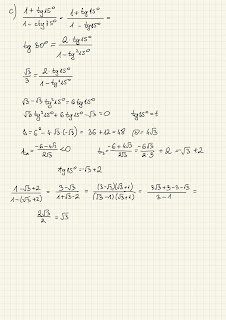 c) (1 + tg15°)/(1 - ctg75°) = (1 + tg15°)/(1 - tg15°) =
tg 30° = (2 · tg15°)/(1 - tg²15°)
√3/3 = (2 · tg15°)/(1 - tg²15°)
√3 - √3 tg²15° = 6 tg15°
√3 tg²15° + 6 tg15° - √3 = 0 tg15° = t
Δ = 6² - 4·√3·(-√3) = 36 + 12 = 48 √Δ = 4√3
t₁ = (-6 - 4√3)/(2√3) < 0 t₂ = (-6 + 4√3)/(2√3) = (-6√3)/(2·3) + 2 = -√3 + 2
tg15° = -√3 + 2
(1 - √3 + 2)/(1 - (-√3 + 2)) = (3 - √3)/(1 + √3 - 2) = ((3 - √3)(√3 + 1))/((√3 - 1)(√3 + 1)) = (3√3 + 3 - 3 - √3)/(3 - 1) =
2√3/2 = √3